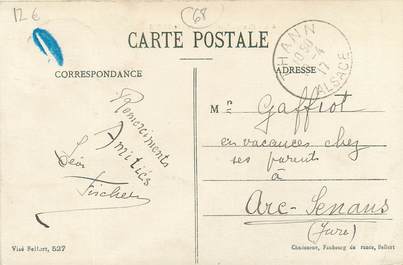 12 €
C68
CARTE POSTALE
THANN
10 50
-4
17
ALSACE
CORRESPONDANCE
ADRESSE
Remerciments
Amitiés
Léon
Fischer
Mr Gaffiot
en vacances chez
ses parents
à
Arc-Senans
(Jura)
Visé Belfort, 527
Chaissment, Faubourg de France, Belfort